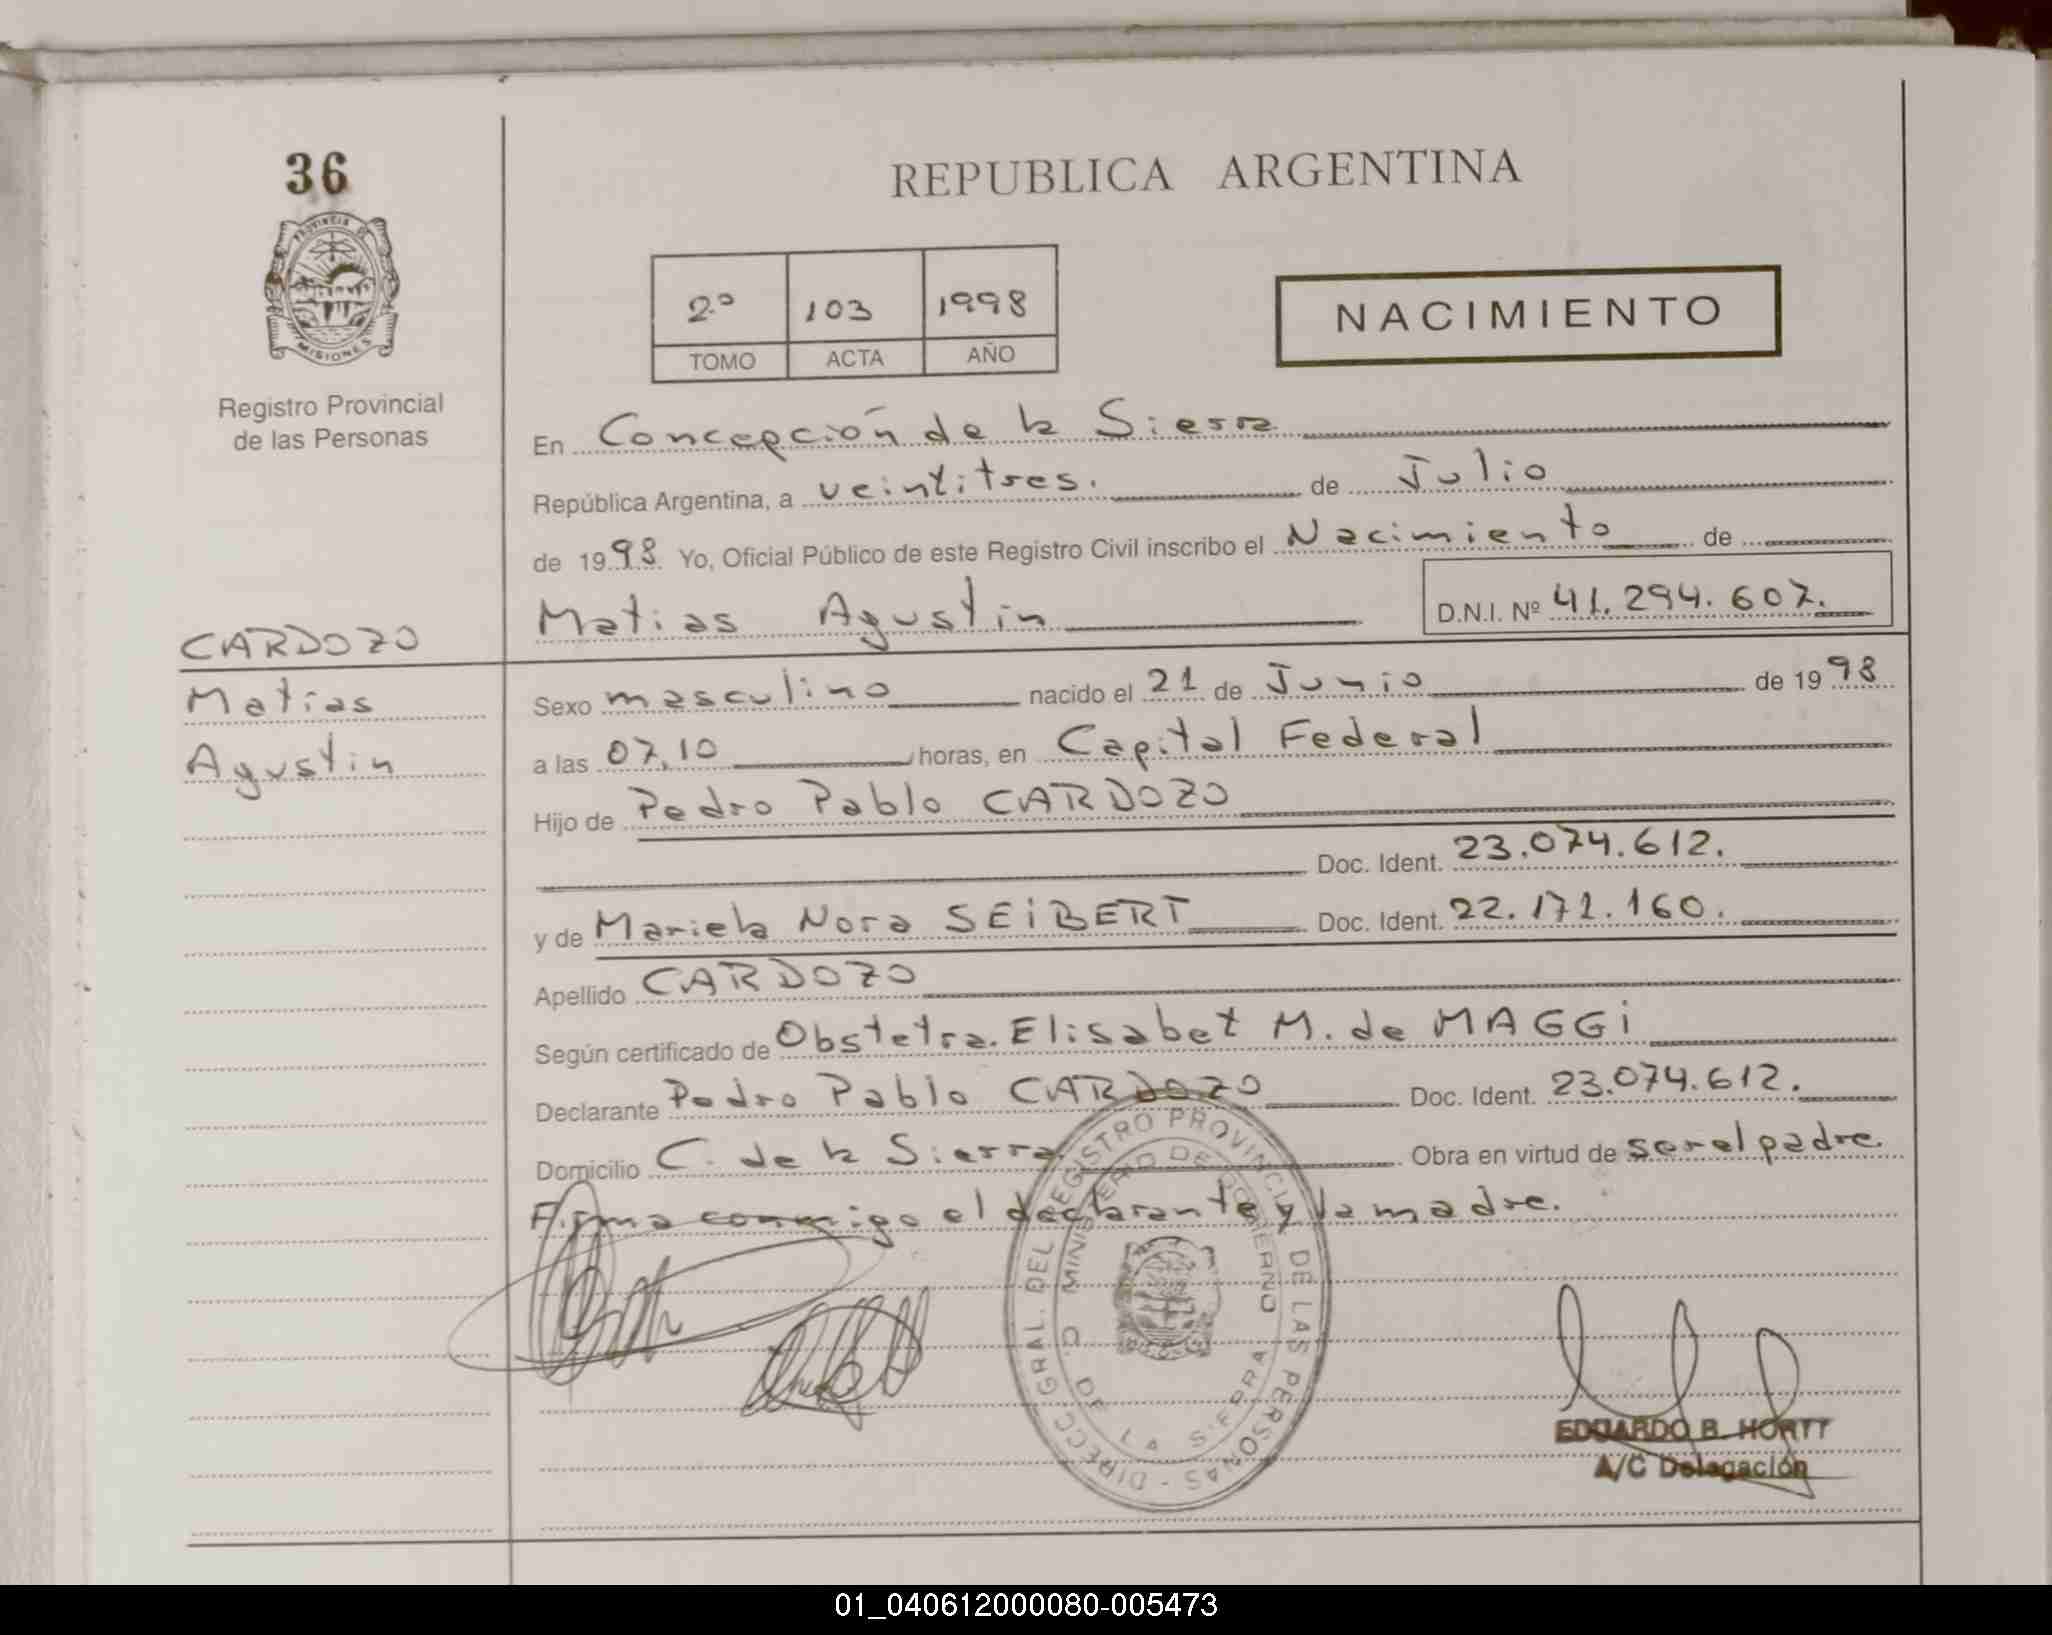 36
PROVINCIA DE
MISIONES
Registro Provincial
de las Personas
REPUBLICA ARGENTINA
2º 103 1998
TOMO ACTA AÑO
NACIMIENTO
En Concepción de la Sierra
República Argentina, a veintitres. de Julio
de 1998 Yo, Oficial Público de este Registro Civil inscribo el Nacimiento de
Matias Agustin D.N.I. Nº 41.294.607.
CARDOZO
Matias
Agustin
Sexo masculino nacido el 21 de Junio de 1998
a las 07,10 horas, en Capital Federal
Hijo de Pedro Pablo CARDOZO
Doc. Ident. 23.074.612.
y de Mariela Nora SEiBERT Doc. Ident. 22.171.160.
Apellido CARDOZO
Según certificado de Obstetra. Elisabet M. de MAGGi
Declarante Pedro Pablo CARDOZO Doc. Ident. 23.074.612.
Domicilio C. de la Sierra Obra en virtud de ser el padre.
Firma conmigo el declarante y la madre.
DIRECC. GRAL. DEL REGISTRO PROVINCIAL DE LAS PERSONAS -
MINISTERIO DE GOBIERNO
C. DE LA SIERRA
EDUARDO B. HORTT
A/C Delegación
01_040612000080-005473